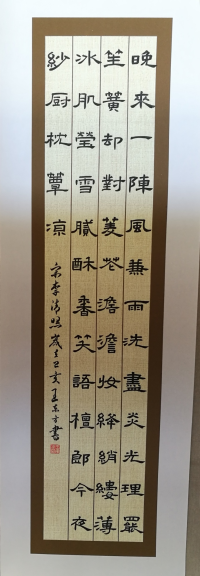 晚來一陣風兼雨洗盡炎光理罷
笙簧却對菱花澹澹妝絳綃縷薄
冰肌瑩雪膩酥香笑語檀郎今夜
紗厨枕簟凉
宋李清照 歲在己亥 書